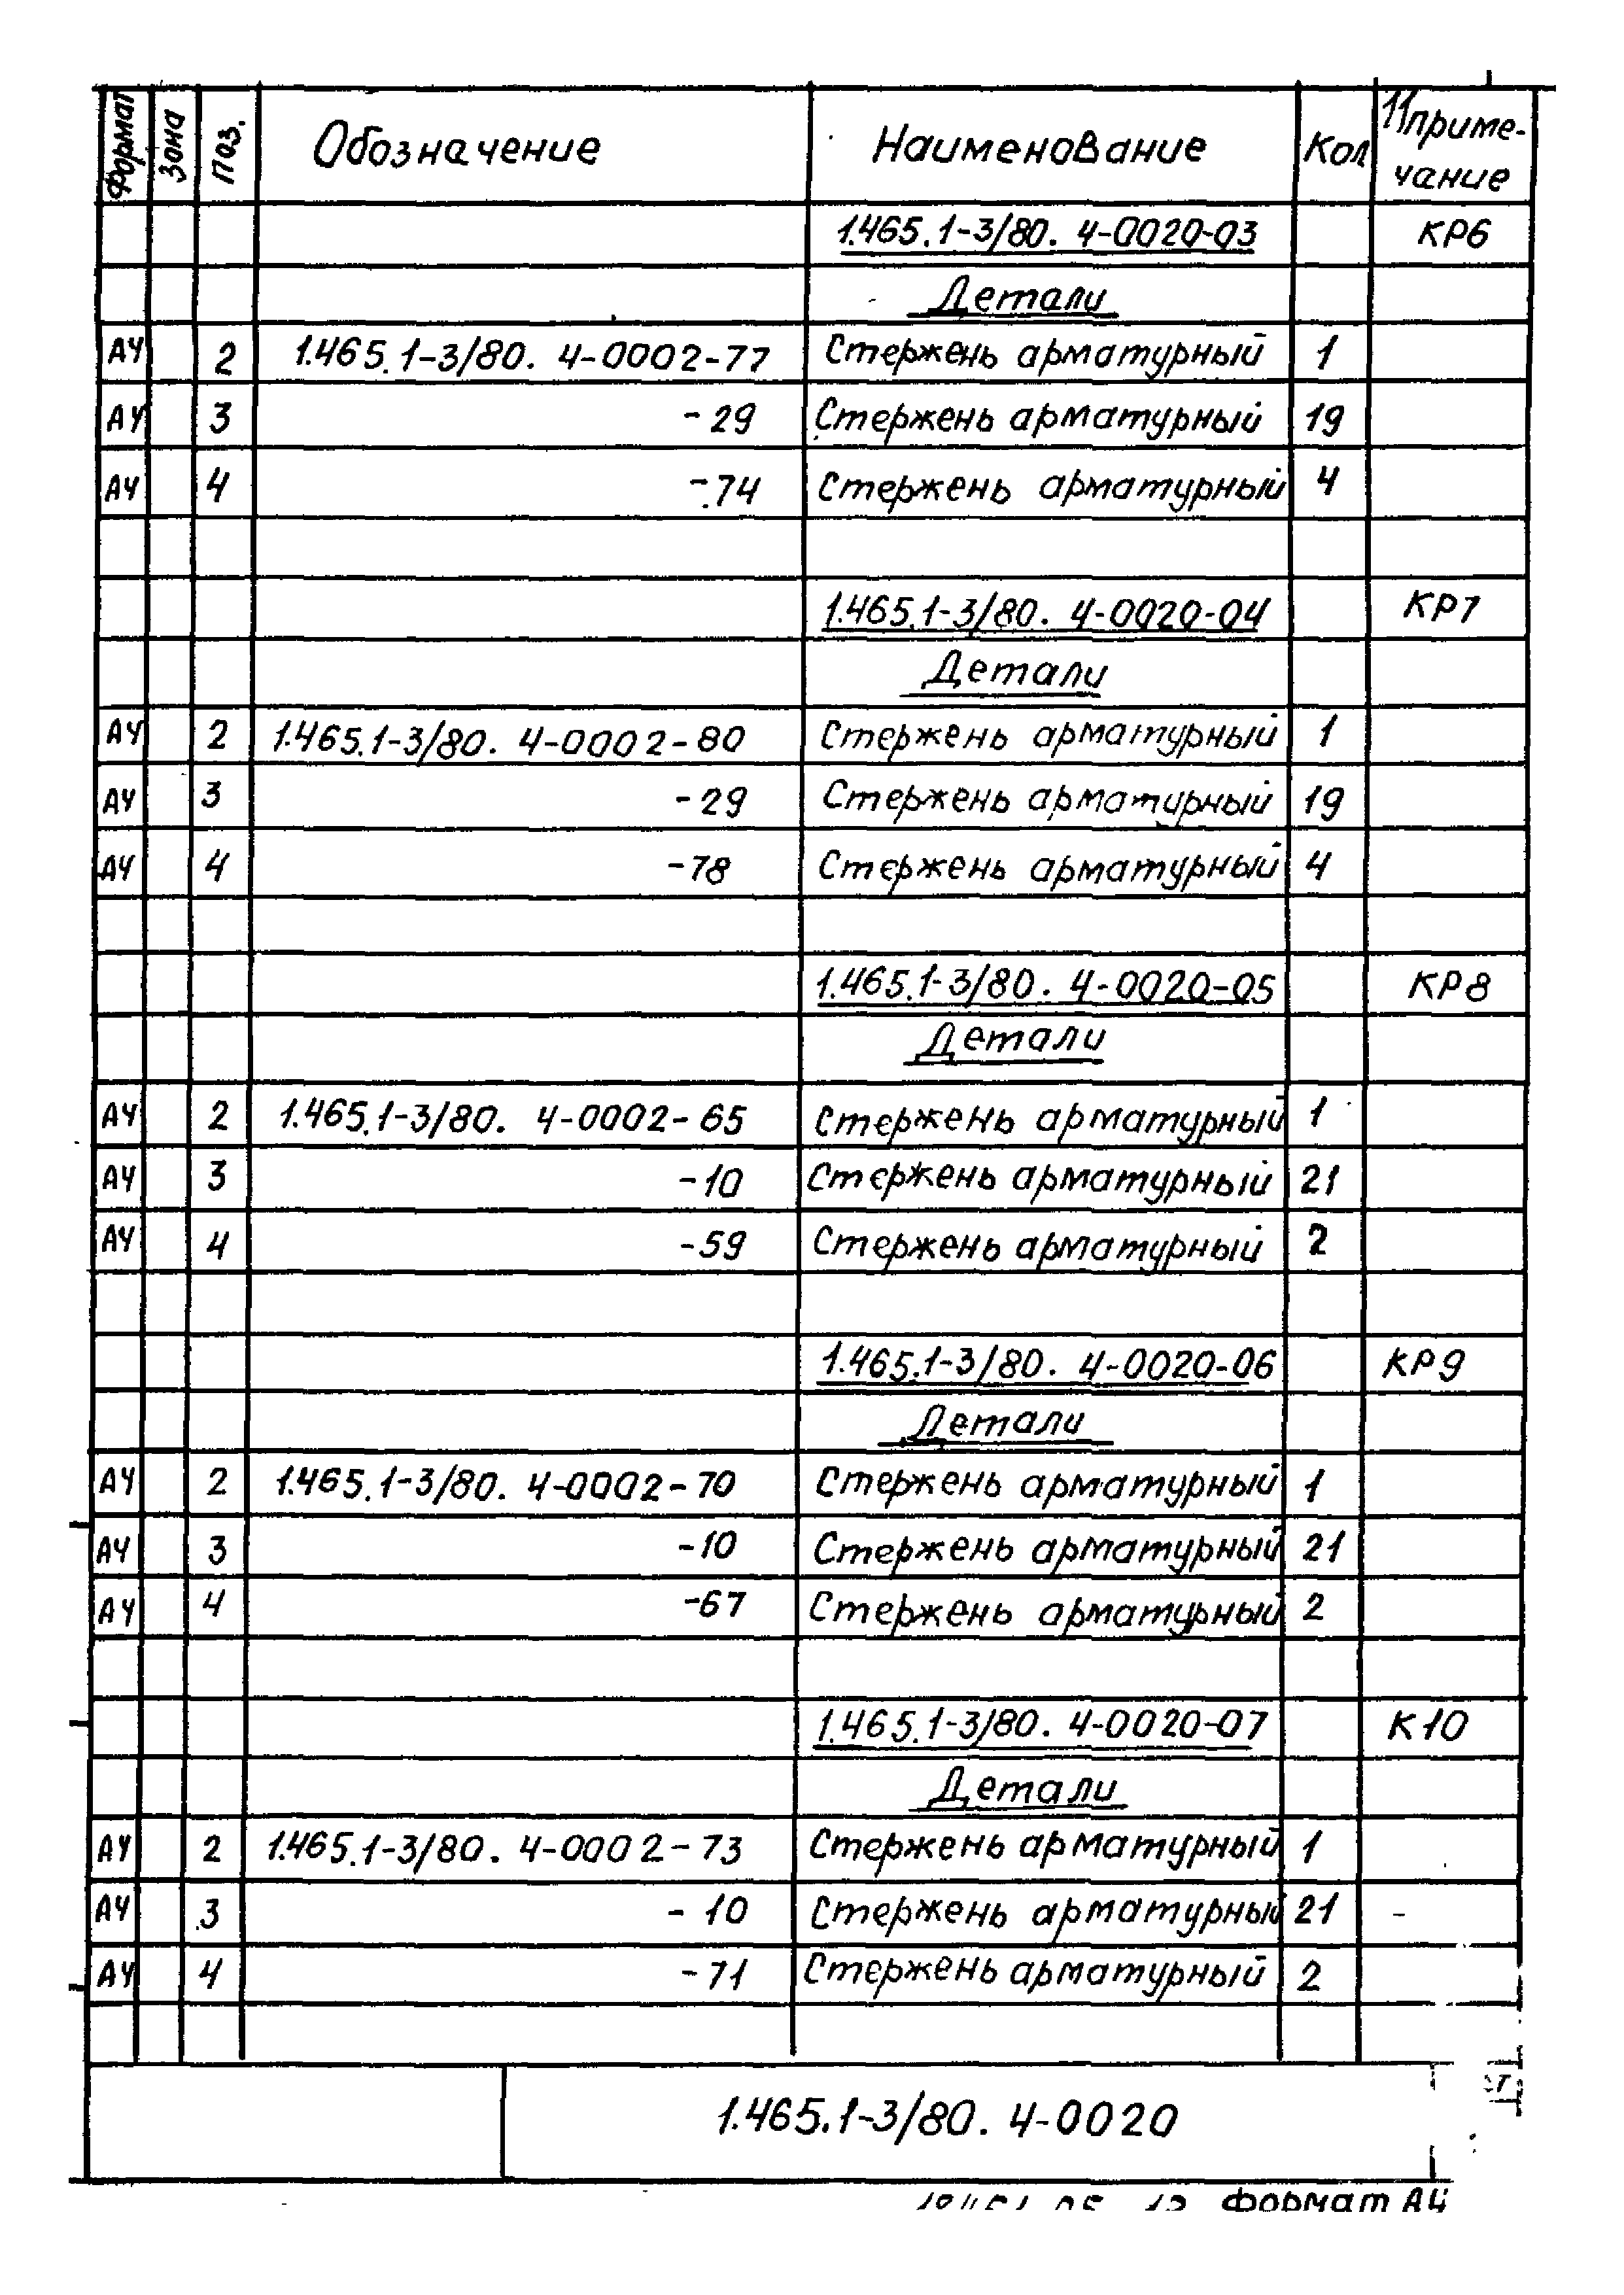 Формат Зона Поз. Обозначение Наименование Кол Приме-
чание
1.465.1-3/80. 4-0020-03 КР6
Детали
А4 2 1.465.1-3/80. 4-0002-77 Стержень арматурный 1
А4 3 -29 Стержень арматурный 19
А4 4 -74 Стержень арматурный 4
1.465.1-3/80. 4-0020-04 КР7
Детали
А4 2 1.465.1-3/80. 4-0002-80 Стержень арматурный 1
А4 3 -29 Стержень арматурный 19
А4 4 -78 Стержень арматурный 4
1.465.1-3/80. 4-0020-05 КР8
Детали
А4 2 1.465.1-3/80. 4-0002-65 Стержень арматурный 1
А4 3 -10 Стержень арматурный 21
А4 4 -59 Стержень арматурный 2
1.465.1-3/80. 4-0020-06 КР9
Детали
А4 2 1.465.1-3/80. 4-0002-70 Стержень арматурный 1
А4 3 -10 Стержень арматурный 21
А4 4 -67 Стержень арматурный 2
1.465.1-3/80. 4-0020-07 К10
Детали
А4 2 1.465.1-3/80. 4-0002-73 Стержень арматурный 1
А4 3 -10 Стержень арматурный 21
А4 4 -71 Стержень арматурный 2
1.465.1-3/80. 4-0020
Формат А4